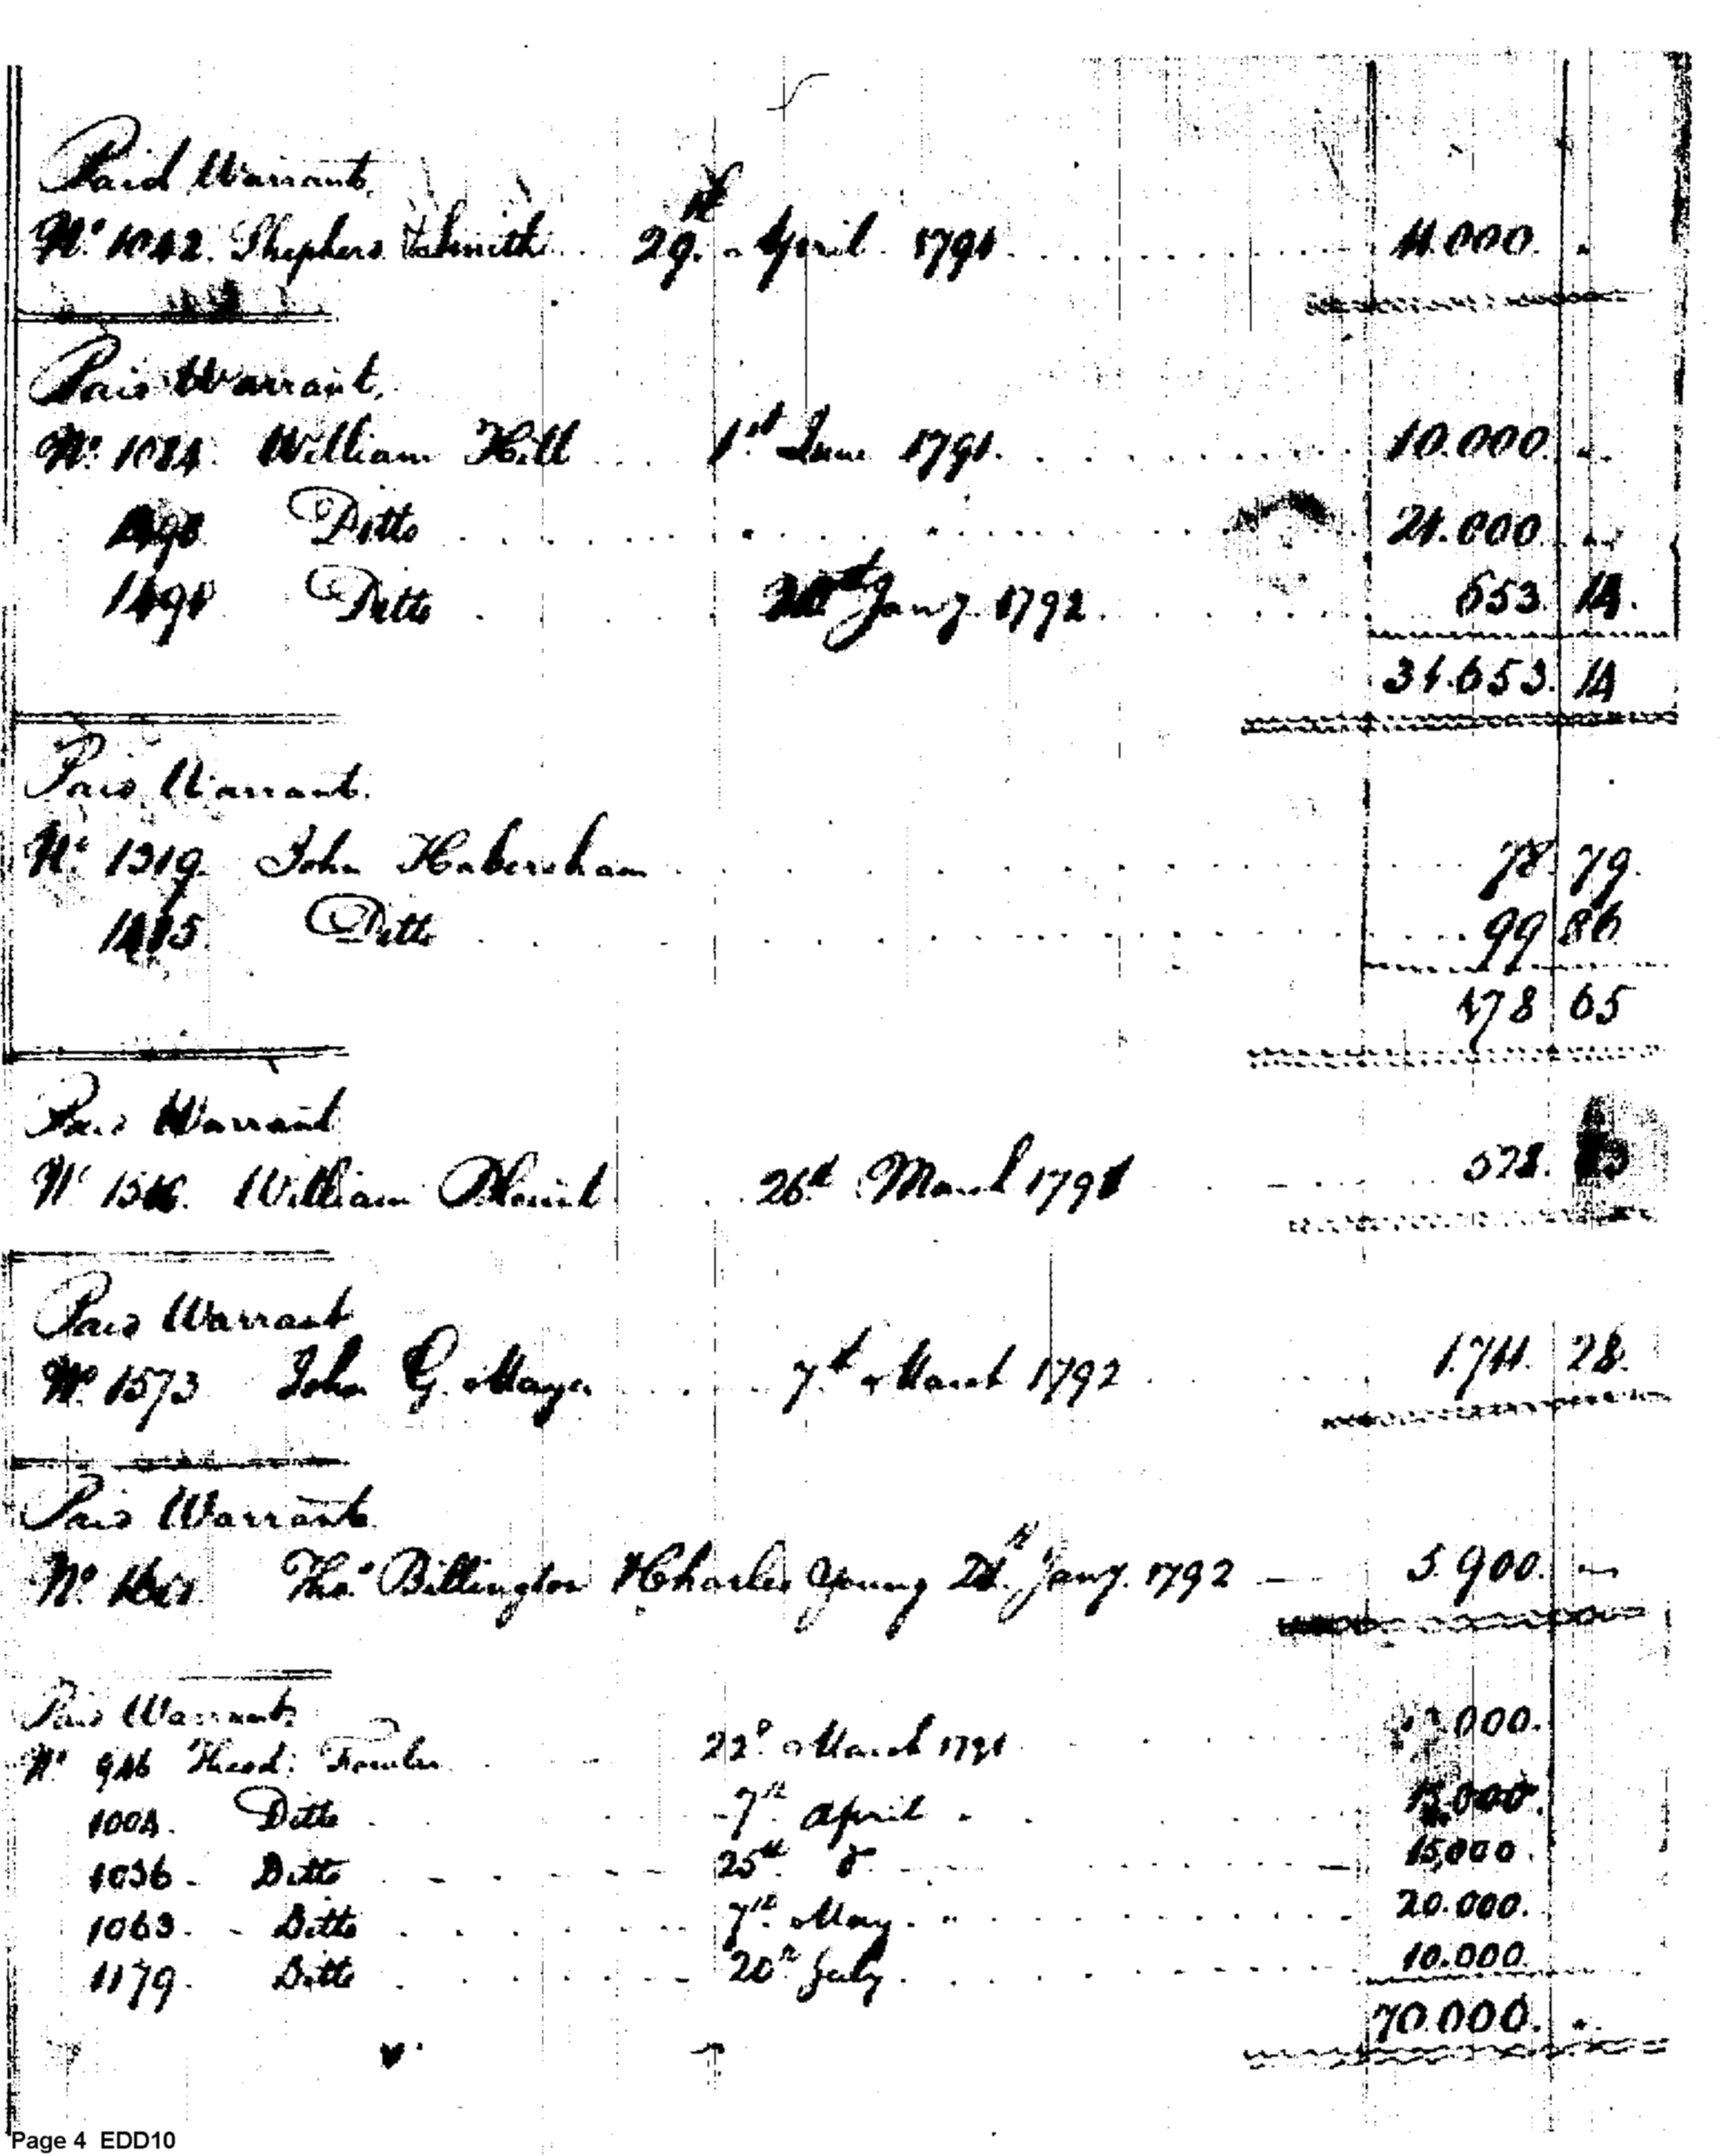 Paid Warrant,
29th April 1791 .000.
Paid Warrant,
No. 1084. William Hill 1st June 1791. 10.000.
Ditto 21.000
1491 Ditto Jany. 1792. 653. 14.
31.653. 14
Paid Warrant.
No. 1319. John Habersham 78. 79.
Ditto 99 86
178 65
Paid Warrant
No. William Blount 26th March 1791 578.
Paid Warrant
No. 1573 John G. Mayer 7th March 1792 1.711. 28.
Paid Warrant
No. Thos. Billington & Charles Young Jany. 1792 5.900.
Paid Warrants
No. 946 Theod: Fowler 22d. March 1791 000.
1004. Ditto 7th April
1036. Ditto 25th do. 15,000.
1063. Ditto 7th. May. " 20.000.
1179. Ditto 20th July. 10.000.
70.000.
Page 4 EDD10